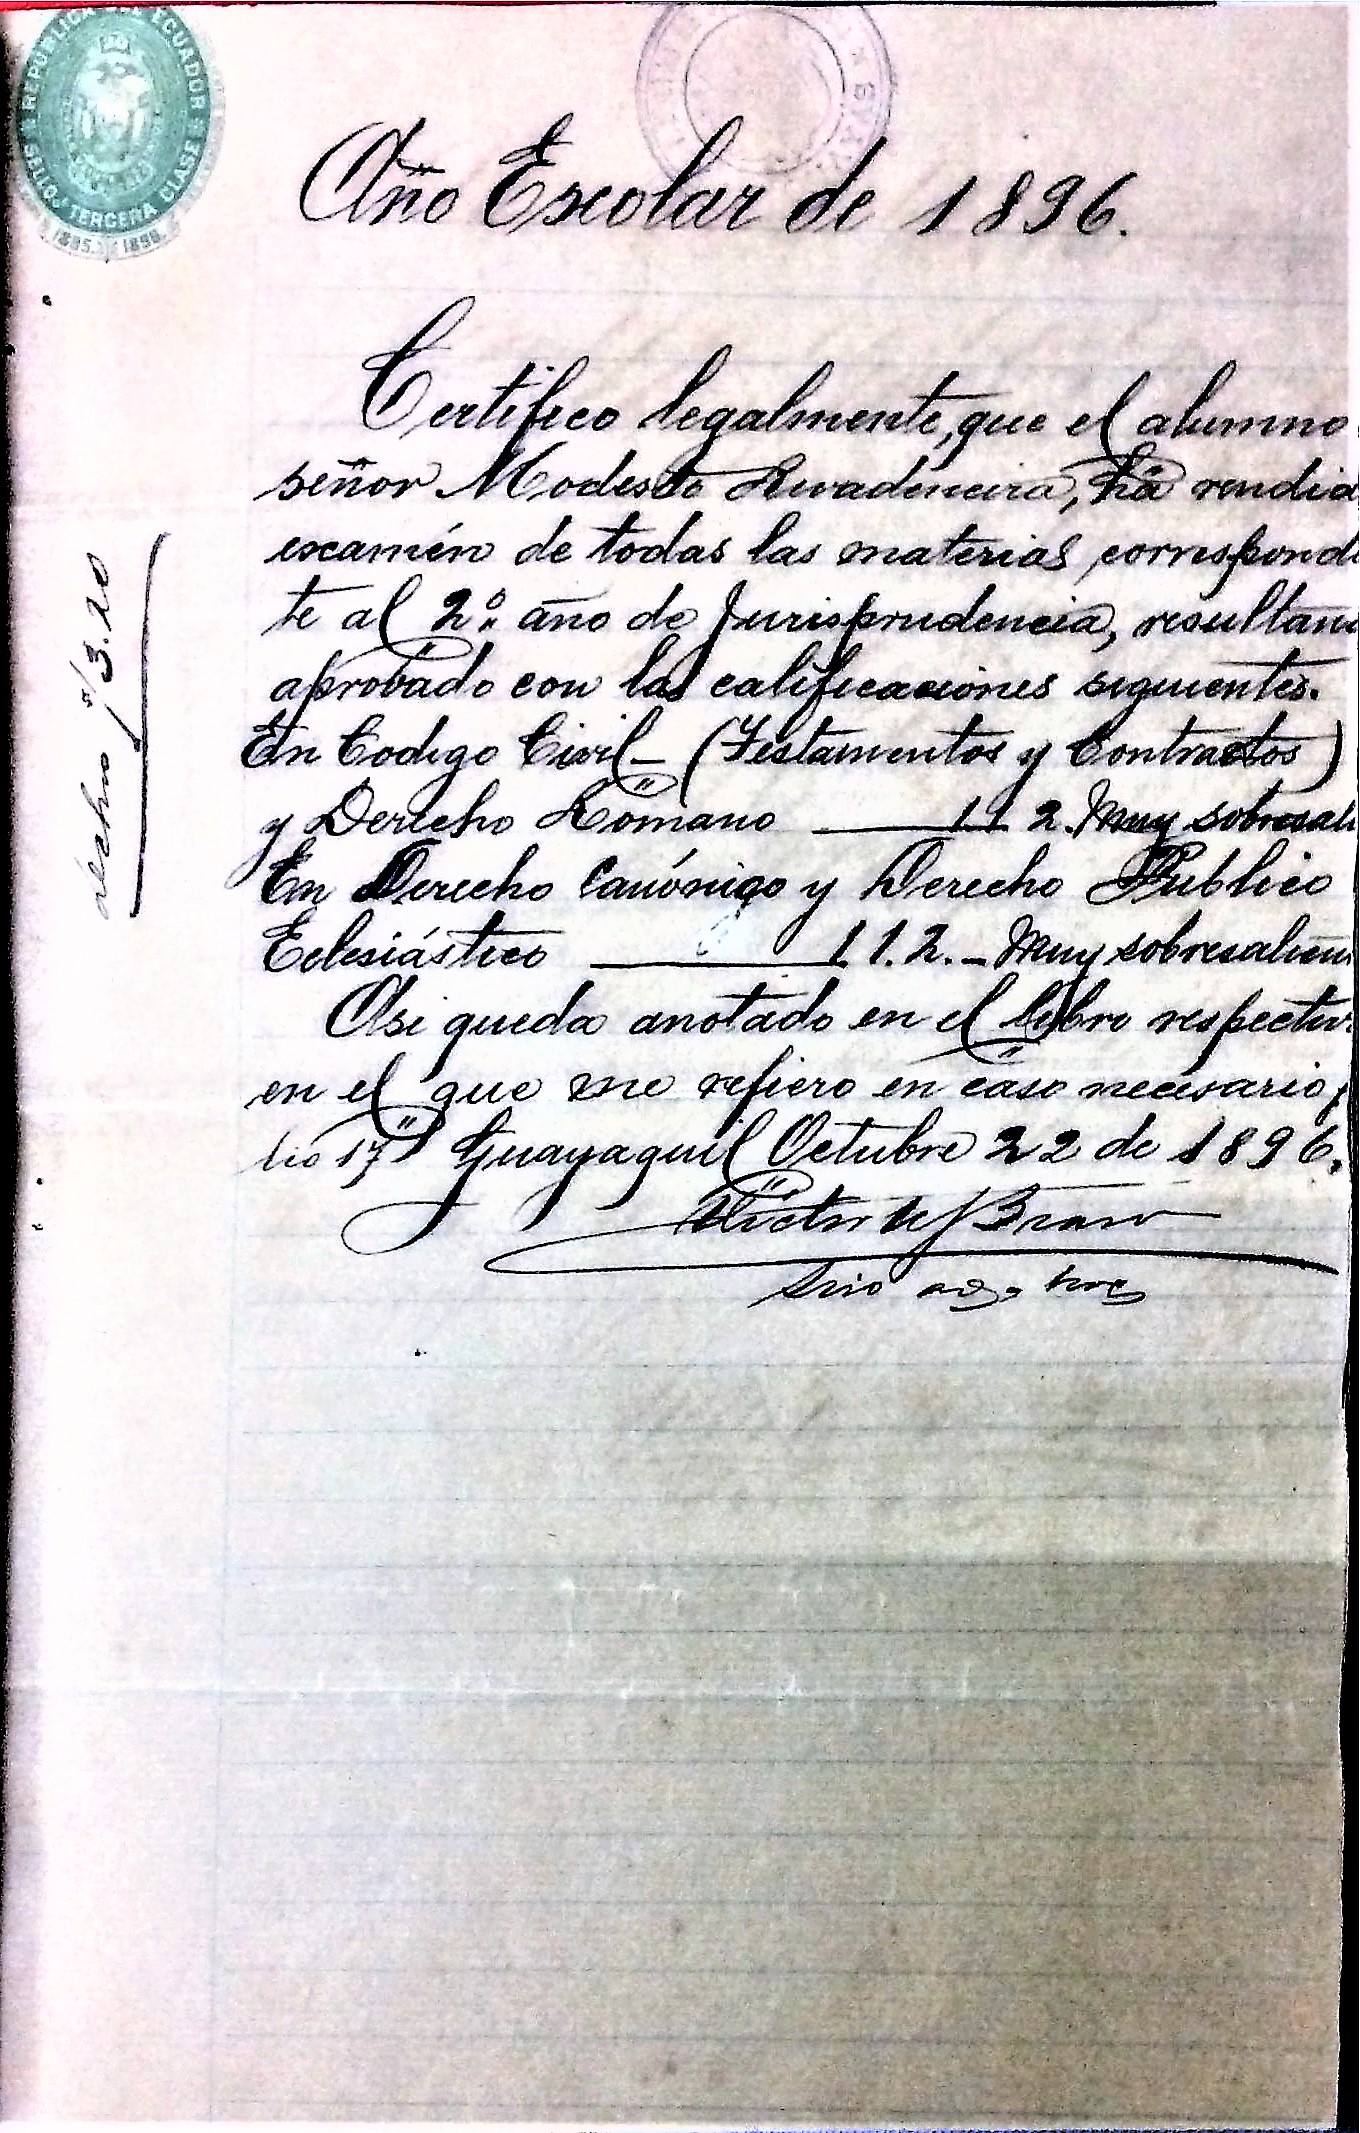 REPUBLICA DEL ECUADOR
SELLO TERCERA CLASE
1895. 1896.
Año Escolar de 1896.
Certifico legalmente, que el alumno
señor Modesto Rivadeneira, ha rendid
examén de todas las materias correspondi
te al 2º año de Jurisprudencia, resultan
aprobado con las calificaciones siguientes.
En Codigo Civil - (Testamentos y Contractos)
y Derecho Romano 1 1 2. Muy sobresali
En Derecho Canónigo y Derecho Publico
Eclesiástico 1 1. 2. - Muy sobresalien
Asi queda anotado en el libro respectiv
en el que me refiero en caso necesario,
lio 17 Guayaquil Octubre 22 de 1896.
Victor M Bravo
Srio
derecho 3.20